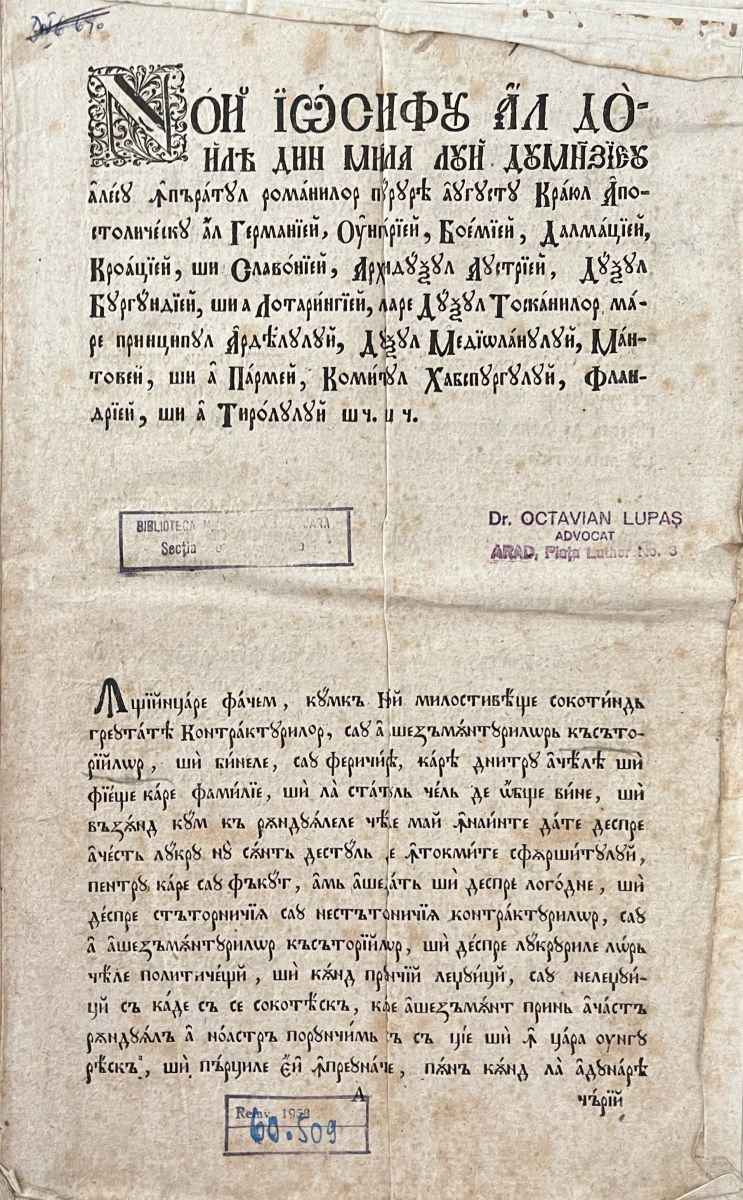 НОЙ ІѠСИФꙋ АЛ ДО-
ИЛѢ ДИН МИЛА ЛꙋЙ ДꙋМНЗІЄꙋ
алесꙋ ꙟпъратꙋл романилор пꙋрꙋрѣ аꙋгꙋстꙋ Краюл Апо-
столическꙋ ал Германїей, Оунгрїей, Боемїей, Далмацїей,
Кроацїей, ши Славонїей, Архидꙋѯꙋл Аꙋстрїей, Дꙋѯꙋл
Бꙋргꙋндїей, ши а Лотарингїей, маре Дꙋѯꙋл Тосканилор ма-
ре принципꙋл Ардѣлꙋлꙋй, Дꙋѯꙋл Медїѡланꙋлꙋй, Ман-
товей, ши а Пармей, Комитꙋл Хабспꙋргꙋлꙋй, Флан-
дрїей, ши а Тиролꙋлꙋй ш ч. ш ч.
BIBLIOTECA
Secția
Dr. OCTAVIAN LUPAȘ
ADVOCAT
ARAD, Piața Luther No. 3
Ꙟщїинцаре фачем, кꙋмкъ Ной милостивѣще сокотиндь
греꙋтатѣ Контрактꙋрилор, саꙋ а шезъмѫнтꙋрилѡрь късъто-
рїйлѡр, ши бинеле, саꙋ феричирѣ, карѣ динтрꙋ ачѣлѣ ши
фїеще каре фамилїе, ши ла статꙋль чель де ѡбще вине, ши
възѫнд кꙋм къ рѫндꙋѧлеле чѣле май ꙟнаинте дате деспре
ачестъ лꙋкрꙋ нꙋ сѫнт дестꙋль де ꙟтокмите сфѫршитꙋлꙋй,
пентрꙋ каре саꙋ фъкꙋт, амь ашезать ши деспре логодне, ши
деспре стъторничїѧ саꙋ нестъторничїѧ контрактꙋрилѡр, саꙋ
а ашезъмѫнтꙋрилѡр късъторїйлѡр, ши деспре лꙋкрꙋриле лѡрь
чѣле политичещй, ши кѫнд прꙋнчїй леџꙋицй, саꙋ нелеџꙋи-
цй съ каде съ се сокотѣскъ, каре ашезъмѫнт принь ачастъ
рѫндꙋѧлъ а ноастръ порꙋнчимь съ съ цїе ши ꙟ цара оунгꙋ
рѣскъ, ши пърциле ей ꙟпреꙋначе, пѫнъ кѫнд ла адꙋнарѣ
А
чърїй
60.509